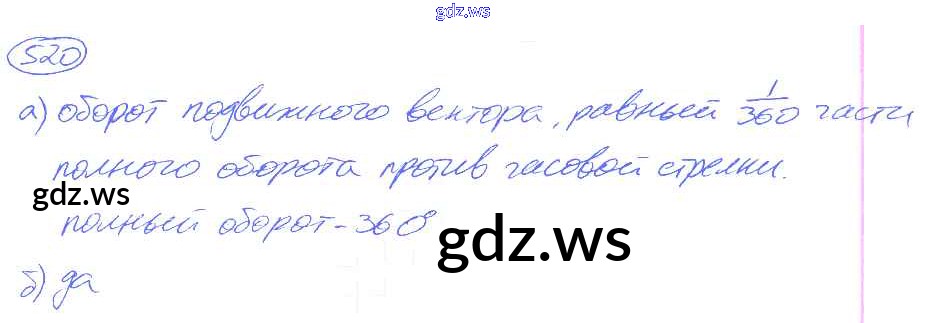 gdz.ws
520
а) оборот подвижного вектора, равный 1/360 части
полного оборота против часовой стрелки.
gdz.ws
полный оборот - 360°
gdz.ws
б) да